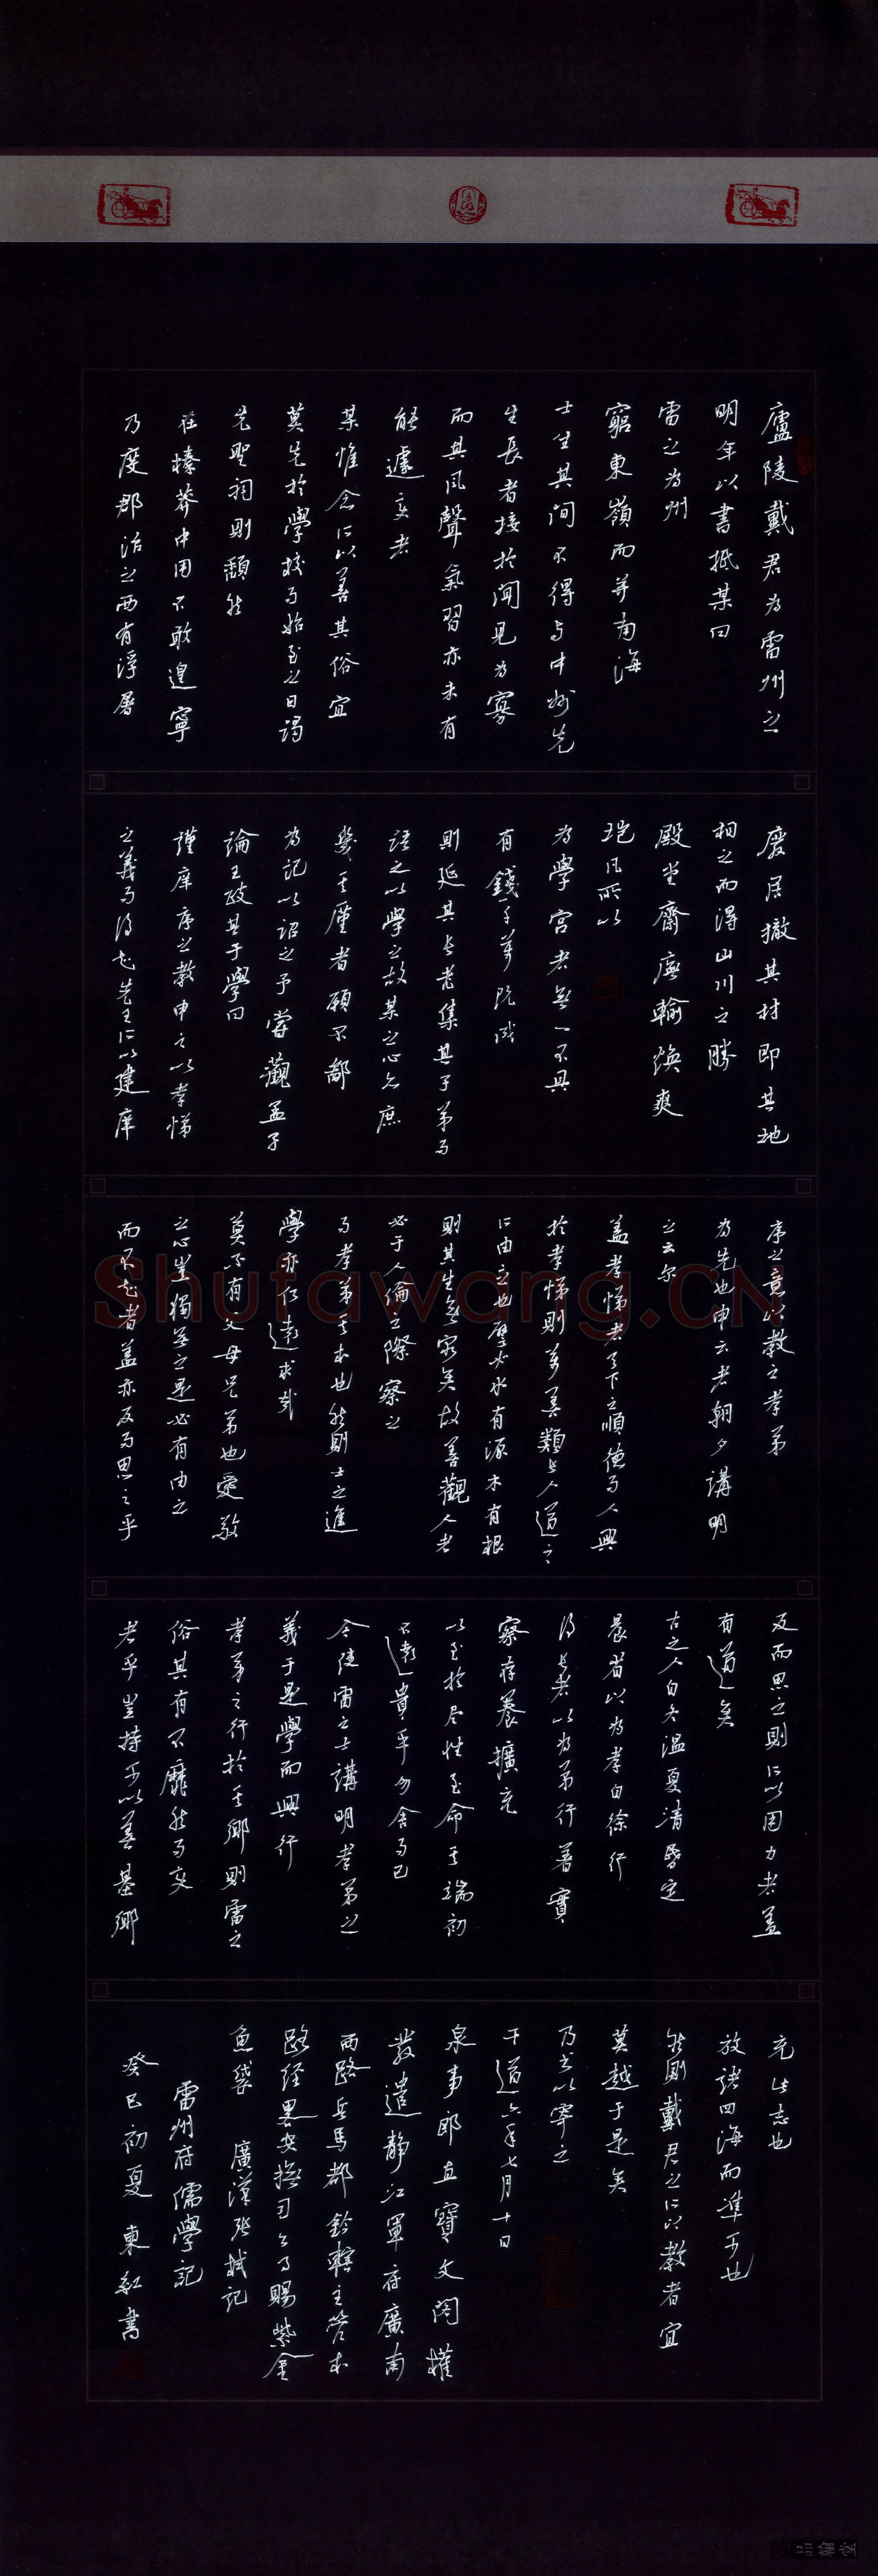 廬陵戴君為雷州之
明年以書抵某曰
雷之為州
窮東嶺而並南海
士生其間不得與中州先
生長者接於聞見為寡
而其風聲氣習亦未有
能遽變者
某惟念所以善其俗宜
莫先於學校而始至之日謁
先聖祠則頹然
在榛莽中用不敢遑寧
乃度郡治之西有浮屠
廢居撤其材即其地
相之而得山川之勝
殿堂齋廡輪煥爽
塏凡所以
為學宮者無一不具
有錢千萬既成
則延其長老集其子弟而
語之以學之故某之心亦庶
幾其厪者願不鄙
為記以詔之予嘗觀孟子
論王政其于學曰
謹庠序之教申之以孝悌
之義而得知先王所以建庠
序之意以教之孝弟
為先也申云者朝夕講明
之云尔
蓋孝悌者天下之順德而人興
於孝悌則萬善類長人道之
所由立也譬如水有源木有根
則其生無窮矣故善觀人者
必于人倫之際察之
而孝弟其本也然則士之進
學亦何遠求哉
莫不有父母兄弟也愛敬
之心豈獨無之是必有由之
而不知者蓋亦反而思之乎
反而思之則所以用力者蓋
有道矣
古之人自冬溫夏凊昏定
晨省以為孝自徐行
後長者以為弟行著實
察存養擴充
以至於尽性至命其端初
不遠貴乎勿舍而已
今使雷之士講明孝弟之
義于是學而興行
孝弟之行於其鄉則雷之
俗其有不靡然而變
者乎豈特可以善其鄉
充此志也
放諸四海而準可也
然則戴君之所以教者宜
莫越于是矣
乃書以寧之
干道六年七月十日
泉事郎直寶文閣權
發遣靜江軍府廣南
西路兵馬都鈐轄主管本
路經畧安撫司公事賜紫金
魚袋 廣漢張栻記
雷州府儒學記
癸巳初夏 東紅書
Shufawang.CN